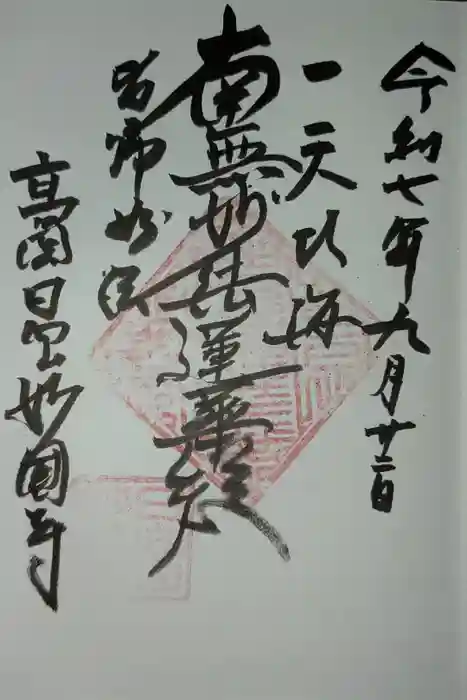 令和七年九月廿二日
一天四海
南無妙法蓮華経
皆帰妙法
妙圓寺